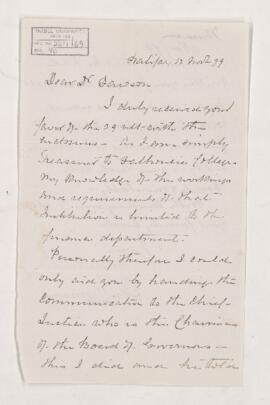 Halifax, 12 Nov. 79
Dear Dr Dawson
I duly received your
favor of the 29 ult. with the
inclosures - As I am simply
Treasurer to Dalhousie College
my knowledge of the workings
and requirements of that
Institution is limited to the
finance department.
Personally therefore I could
only aid you by handing the
Communication to the Chief-
Justice who is the Chairman
of the Board of Governors -
this I did and